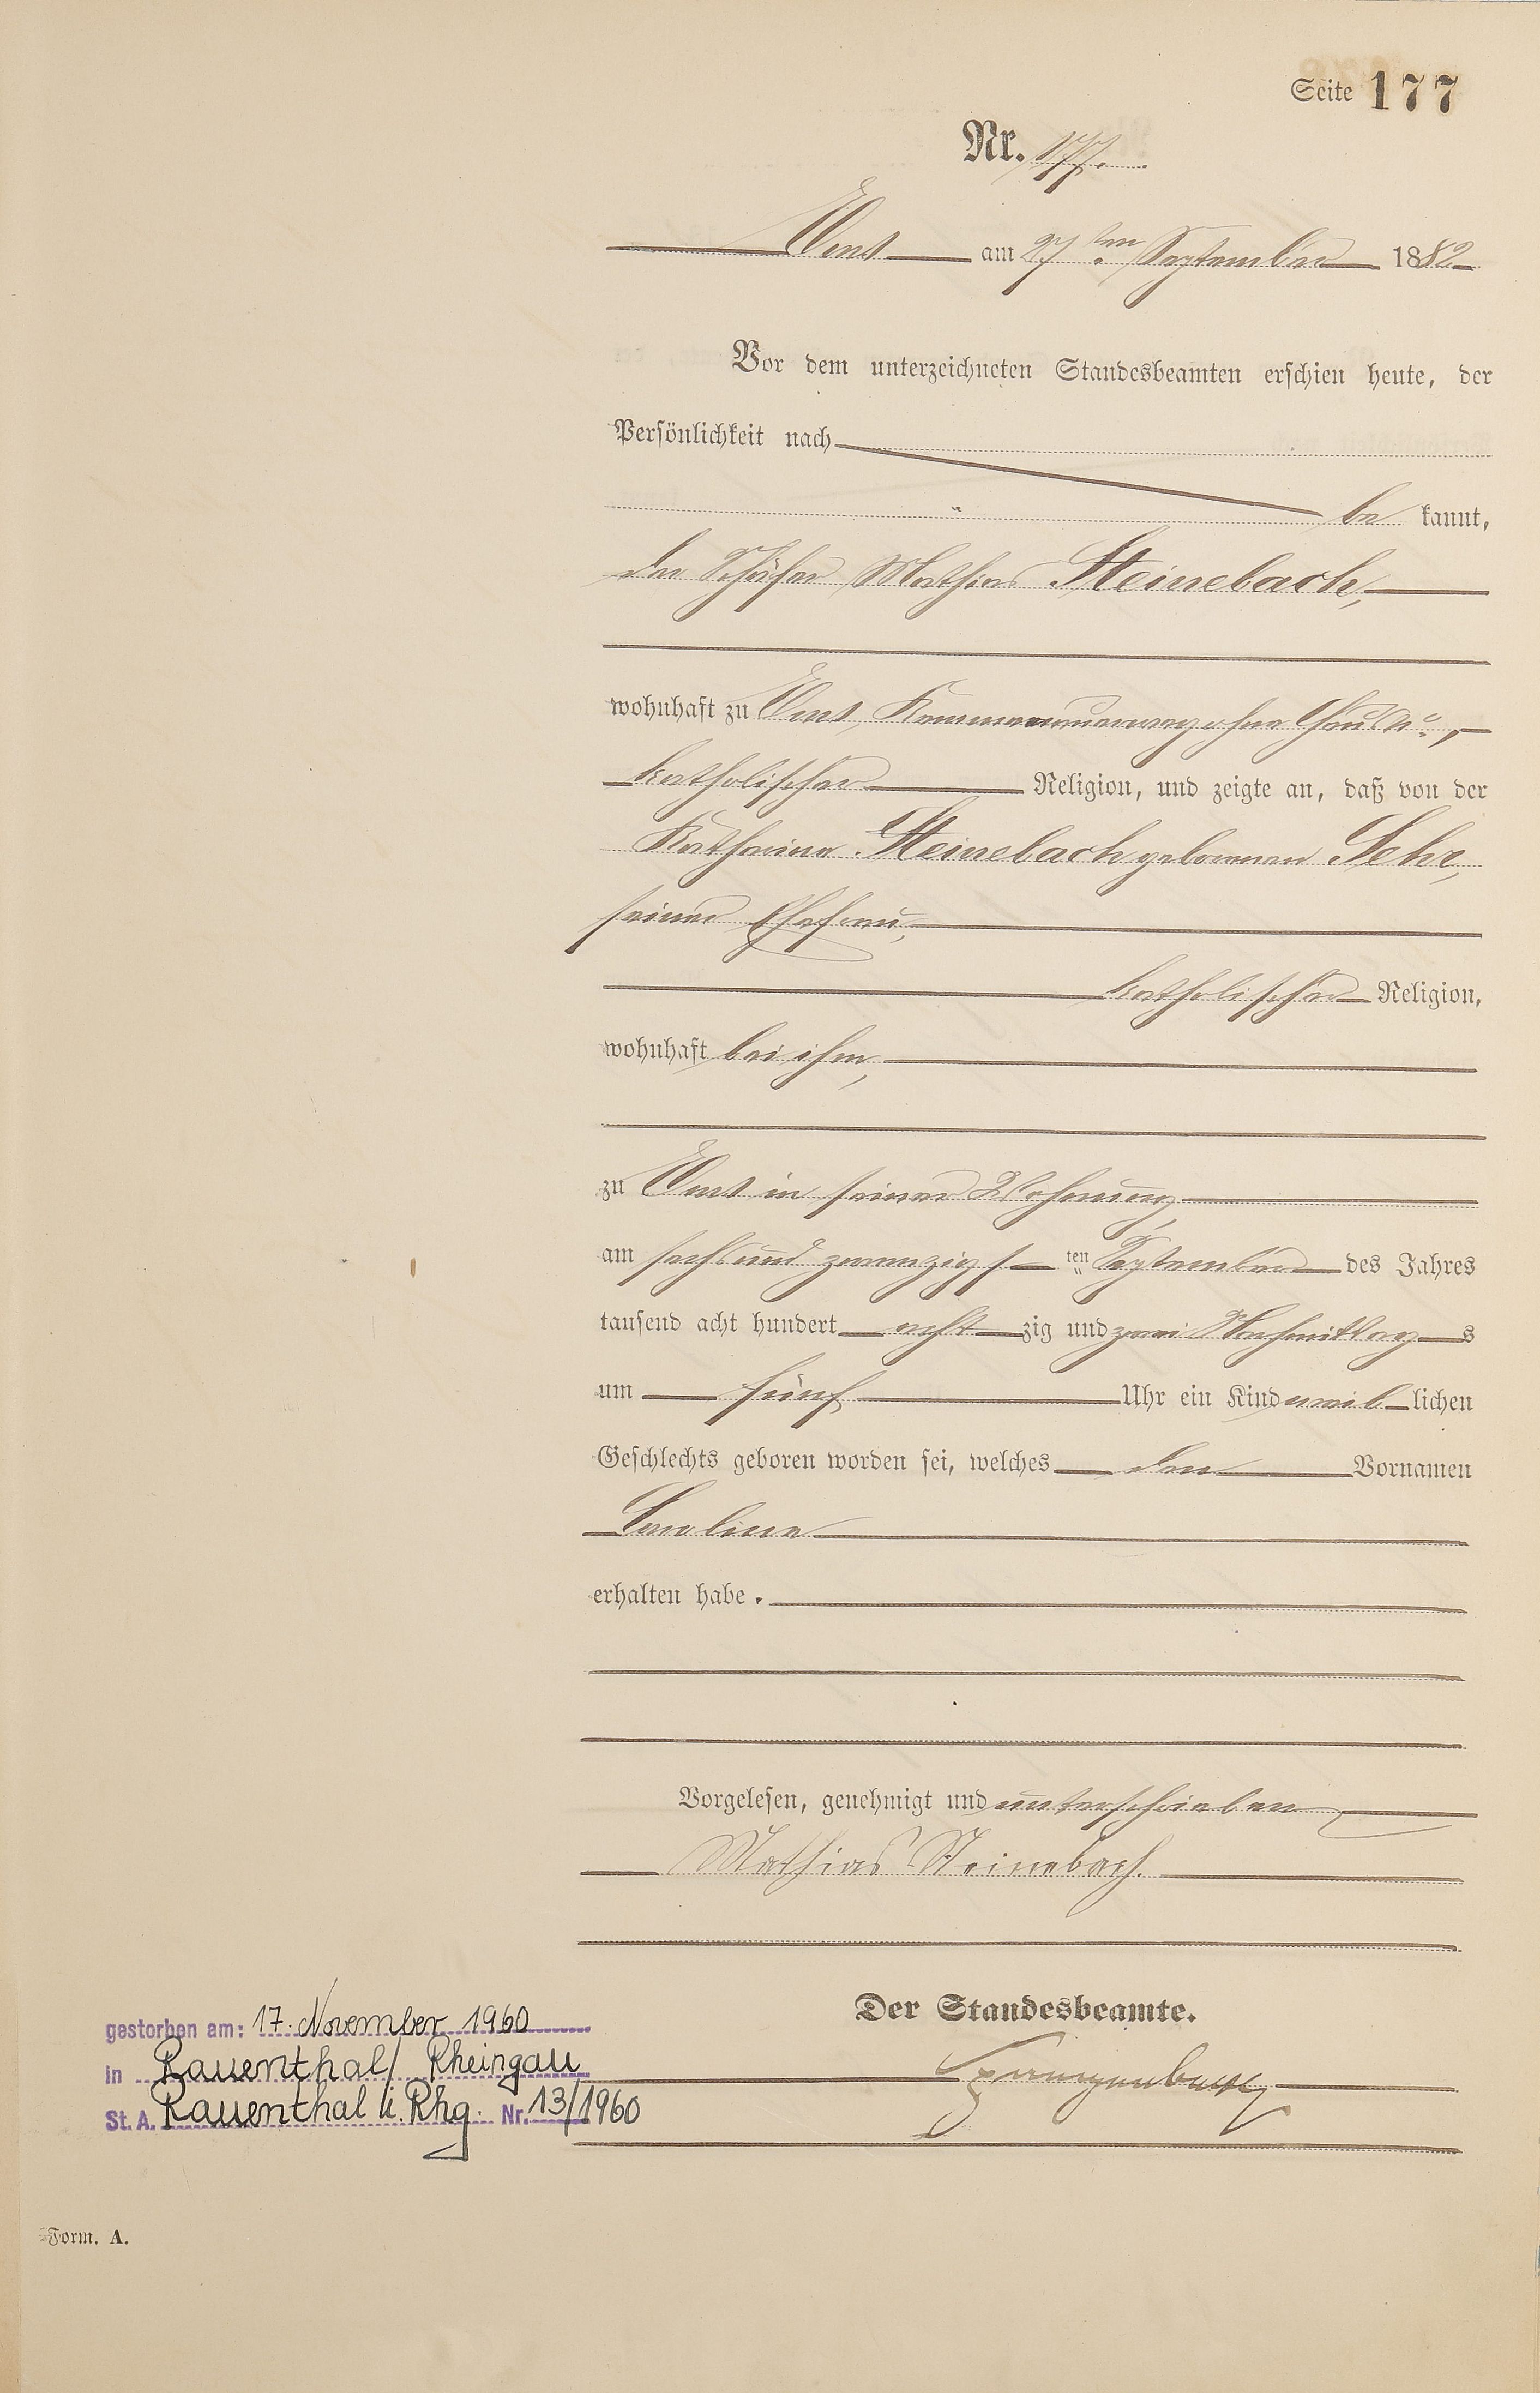 Seite 177
Nr. 177.
Ems am 27ten September 1882
Vor dem unterzeichneten Standesbeamten erschien heute, der
Persönlichkeit nach
be kannt,
der Schäfer Mathias Steinebach,
wohnhaft zu Ems, ohne Haus No.,
katholischer Religion, und zeigte an, daß von der
Katharina Steinebach geborenen Sehr,
seiner Ehefrau,
katholischer Religion,
wohnhaft bei ihm,
zu Ems in seiner Wohnung,
am sechsundzwanzigs ten September des Jahres
tausend acht hundert acht zig und zwei Nachmittag s
um fünf Uhr ein Kind weib lichen
Geschlechts geboren worden sei, welches den Vornamen
Caroline
erhalten habe.
Vorgelesen, genehmigt und unterschrieben
Mathias Steinebach.
Der Standesbeamte.
Spangenberg
gestorben am: 17. November 1960
in Rauenthal/ Rheingau
St. A. Rauenthal i. Rhg. Nr. 13/1960
Form. A.